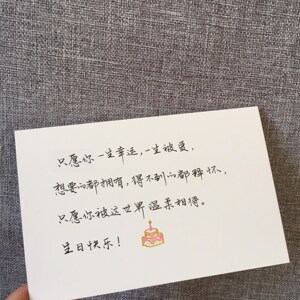 只愿你一生幸运，一生被爱，
想要的都拥有，得不到的都释怀，
只愿你被这世界温柔相待。
生日快乐！